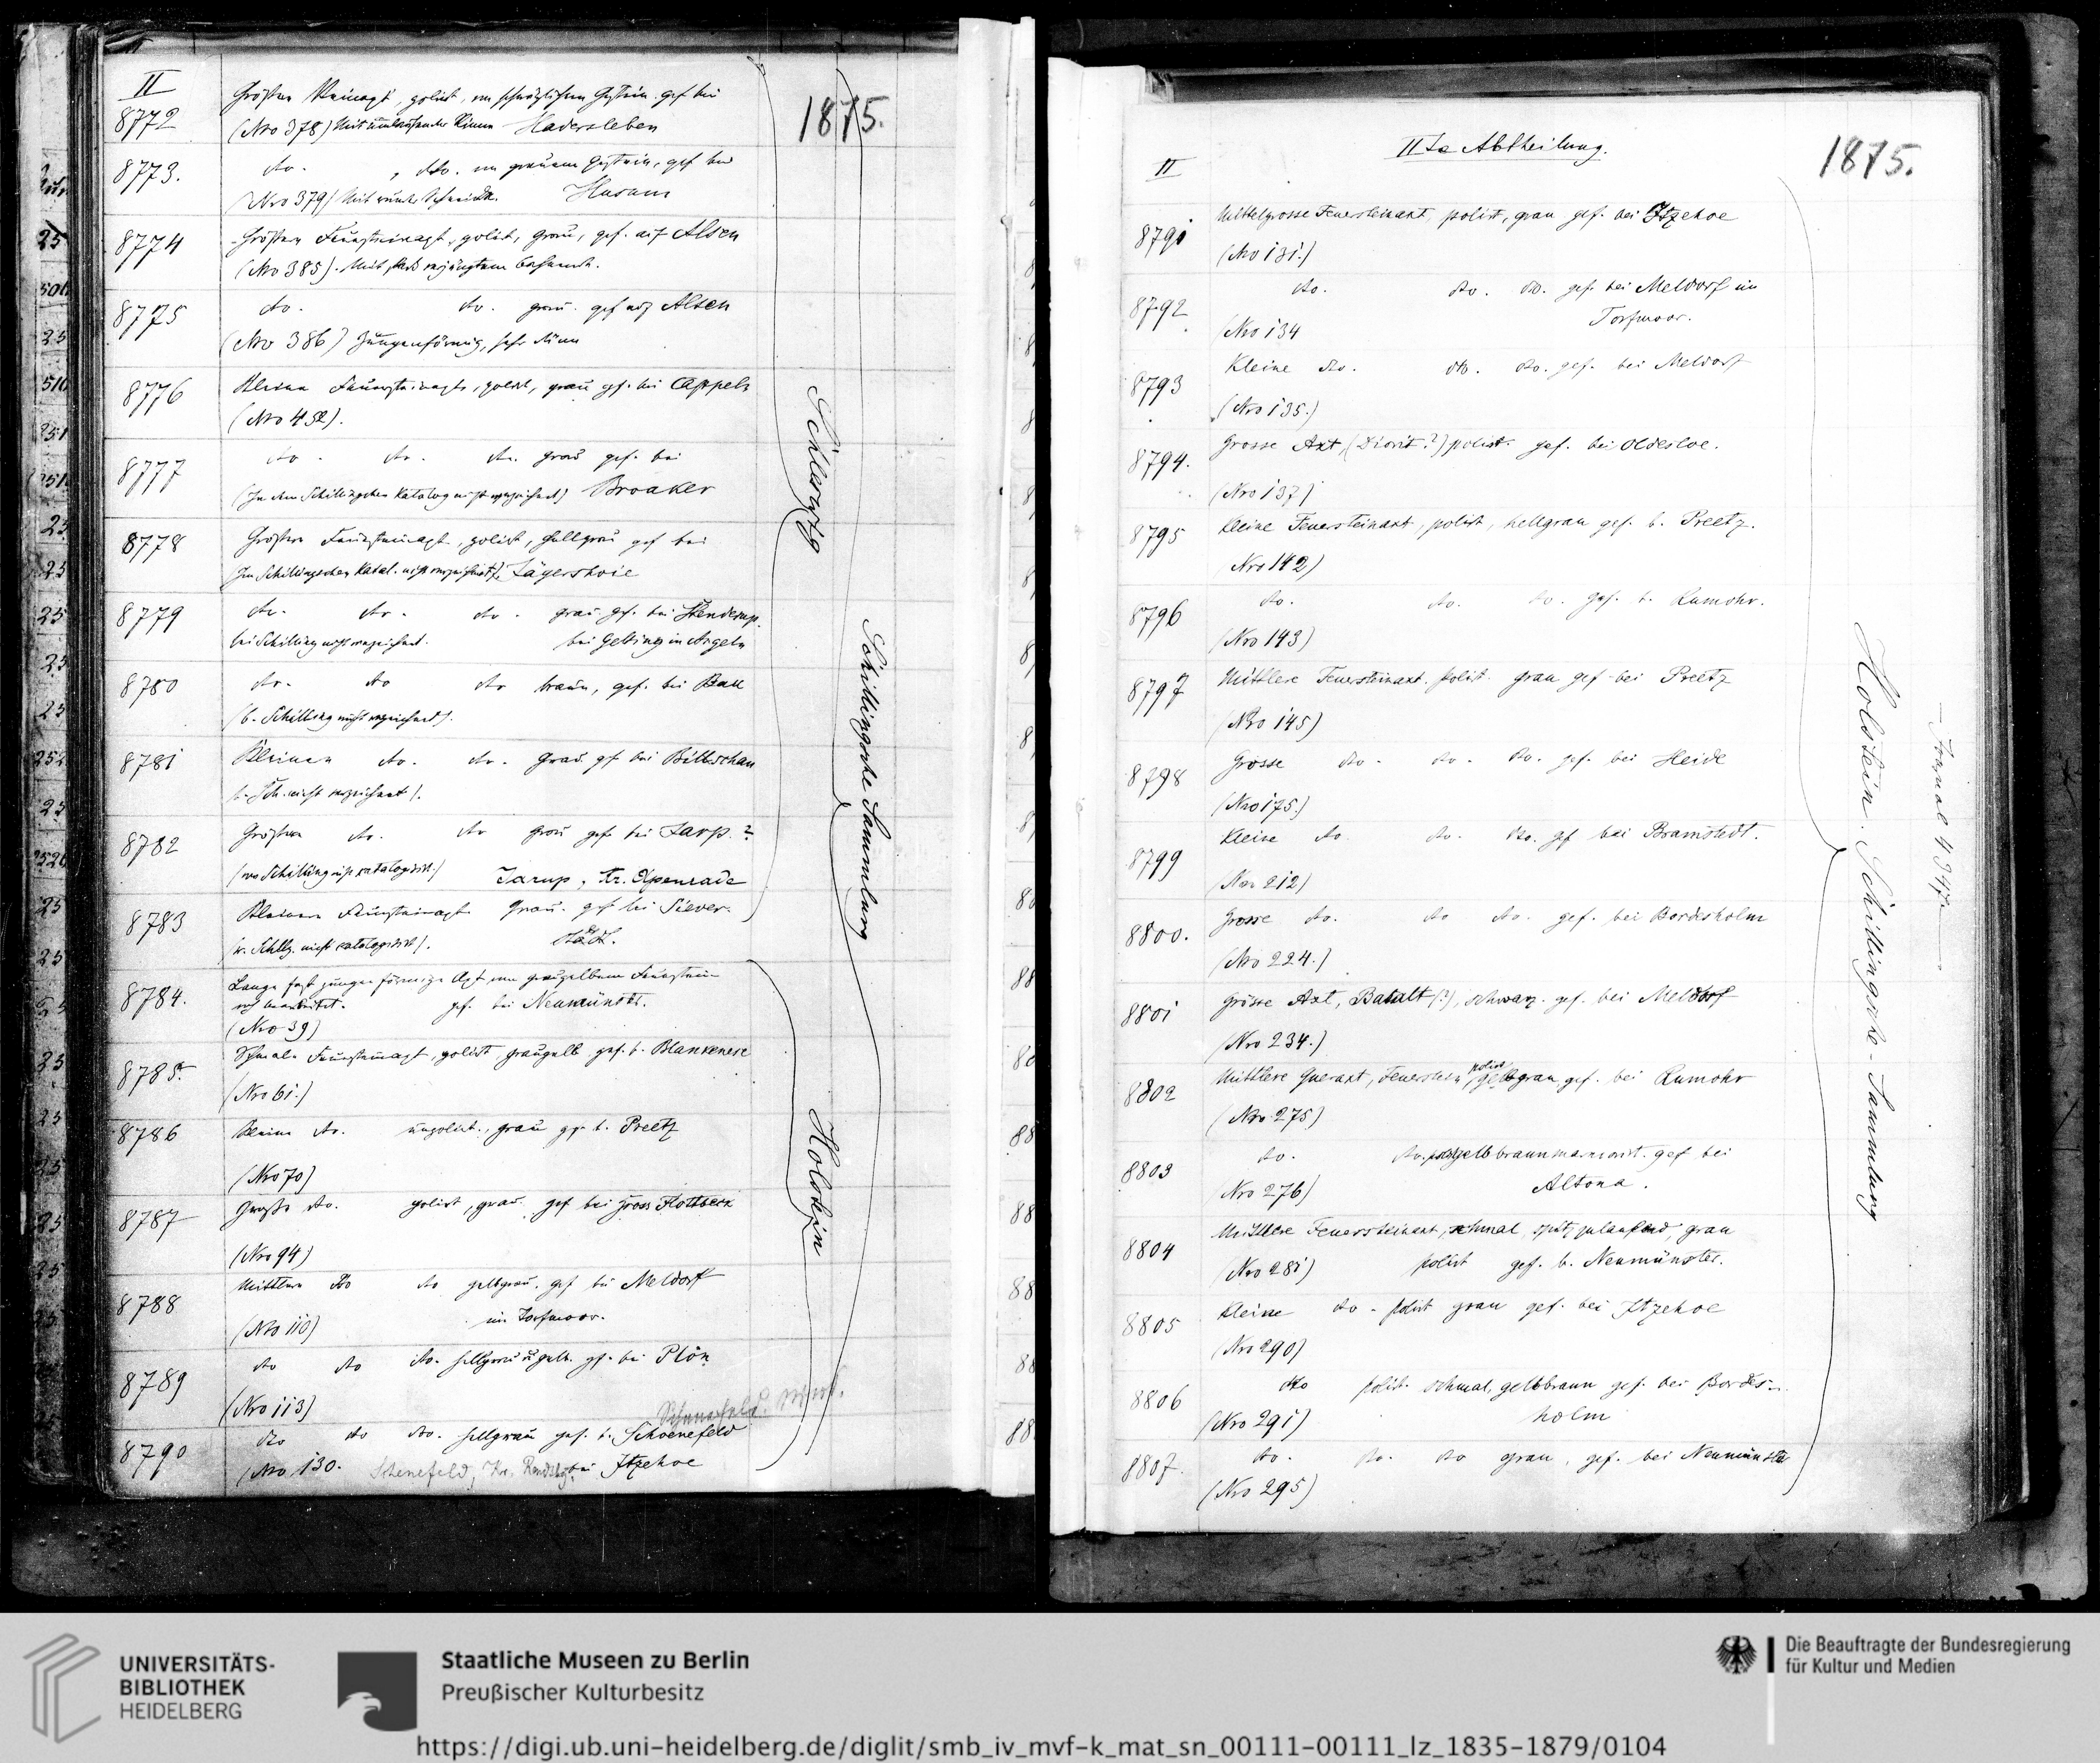 II
1875.
8772
Größere Steinaxt, polirt, von schwärzlichem Gestein gef. bei
(Nro 378) Mit umlaufender Rinne Hadersleben
8773.
do. , do. von grauem Gestein, gef. bei
(Nro 379) Mit runder Schneide. Husum
8774
Größere Feuersteinaxt, polirt, grau, gef. auf Alsen
(Nro 385). Mit stark verjüngtem
8775
do. do. grau. gef auf Alsen
(Nro 386) Zungenförmig, sehr dünn
8776
Kleine Feuersteinaxt, polirt, grau gef. bei Cappeln
(Nro 452).
8777
do. do. do. grau gef. bei
(In dem Schillingschen Katalog nicht verzeichnet) Broaker
8778
Größere Feuersteinaxt, polirt, hellgrau gef bei
(Im Schillingschen Katal. nicht verzeichnet). Jägershoie
8779
do. do. do. grau gef. bei Stenderup.
bei Schilling nicht verzeichnet. bei Gelting in Angeln
8780
do. do do braun, gef. bei Bau
(b. Schilling nicht verzeichnet).
8781
Kleinere do. do. grau gef bei Bülbschau
(b. Sch. nicht verzeichnet).
8782
Größere do. do grau gef. bei Jarp. ?
(von Schilling nicht katalogisirt.) Jarup, Kr. Apenrade
8783
Kleinere Feuersteinaxt grau. gef bei Siever-
(v. Schllg. nicht katalogisirt). städt.
8784.
Lange fast zungenförmige Axt von graugelbem Feuerstein
roh bearbeitet. gef. bei Neumünster.
(Nro 39)
8785.
Schmale Feuersteinaxt, polirt, graugelb gef. b. Blankenese
(Nro 61.)
8786
Kleine do. unpolirt., grau gef. b. Preetz
(Nro 70)
8787
Große do. polirt, grau. gef bei gross Flottbeck
(Nro 94)
8788
Mittlere do do gelbgrau, gef bei Meldorf
(Nro 110) im Torfmoor.
8789
do do do. hellgrau u gelb. gef. bei Plön
(Nro 113)
8790
do do do. hellgrau gef. b. Schoenefeld
(Nro 130. Schenefeld, Kr. Rendsbg bei Itzehoe
Schleswig
Holstein
Schillingsche Sammlung
II
IIte Abtheilung.
1875.
8791
Mittelgrosse Feuersteinaxt, polirt, grau gef. bei Itzehoe
(Nro 131.)
8792
do. do. do. gef. bei Meldorf im
(Nro 134 Torfmoor.
8793
Kleine do. do. do. gef. bei Meldorf
(Nro 135.)
8794.
Grosse Axt, (Diorit?) polirt. gef. bei Oldesloe.
(Nro 137)
8795
Kleine Feuersteinaxt, polirt, hellgrau gef. b. Preetz.
(Nro 142)
8796
do. do. do. gef. b. Rumohr.
(Nro 143)
8797
Mittlere Feuersteinaxt. polirt. grau gef bei Preetz
(Nro 145)
8798
Grosse do. do. do. gef. bei Heide
(Nro 175.)
8799
Kleine do. do. do. gef bei Bramstedt.
(Nro 212)
8800.
Grosse do. do do. gef. bei Bordisholm
(Nro 224.)
8801
Grosse Axt, Basalt (?), schwarz. gef. bei Meldorf
(Nro 234.)
8802
Mittlere Queraxt, Feuerstein polirt, gelbgrau, gef. bei Rumohr
(Nro 275)
8803
do. do. polirt gelbbraun marmorirt. gef bei
(Nro 276) Altona.
8804
Mittlere Feuersteinaxt, schmal, spitz zulaufend, grau
(Nro 281) polirt gef. b. Neumünster.
8805
Kleine do - polirt grau gef. bei Itzehoe
(Nro 290)
8806
do polirt. schmal, gelbbraun gef. bei Bordes-
(Nro 291) holm
8807.
do. do. do grau, gef. bei Neumünster
(Nro 295)
Holstein. Schillingsche-Sammlung
— Journal 4347. —
UNIVERSITÄTS-
BIBLIOTHEK
HEIDELBERG
Staatliche Museen zu Berlin
Preußischer Kulturbesitz
Die Beauftragte der Bundesregierung
für Kultur und Medien
https://digi.ub.uni-heidelberg.de/diglit/smb_iv_mvf-k_mat_sn_00111-00111_lz_1835-1879/0104